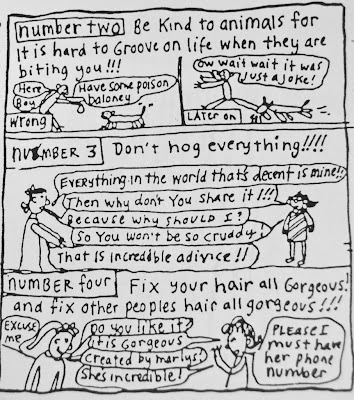 number two Be Kind to animals for
It is hard to Groove on life when they are
biting you!!!
Here Boy
Have some poison baloney
Wrong
Ow wait wait it was Just a Joke!
LATER ON
NUMBER 3 Don't hog everything!!!!
Everything in the world that's decent is mine!!
Then why don't you share it!!!
Because why should I?
So you won't be so cruddy!
That is incredble adivice!!
NUMBER four Fix your hair all Gorgeous!
and fix other peoples hair all gorgeous!!!
EXCUSE ME
Do you like it?
it is Gorgeous
created by marlys!
She's incredible!
PLEASE I must have her phone number